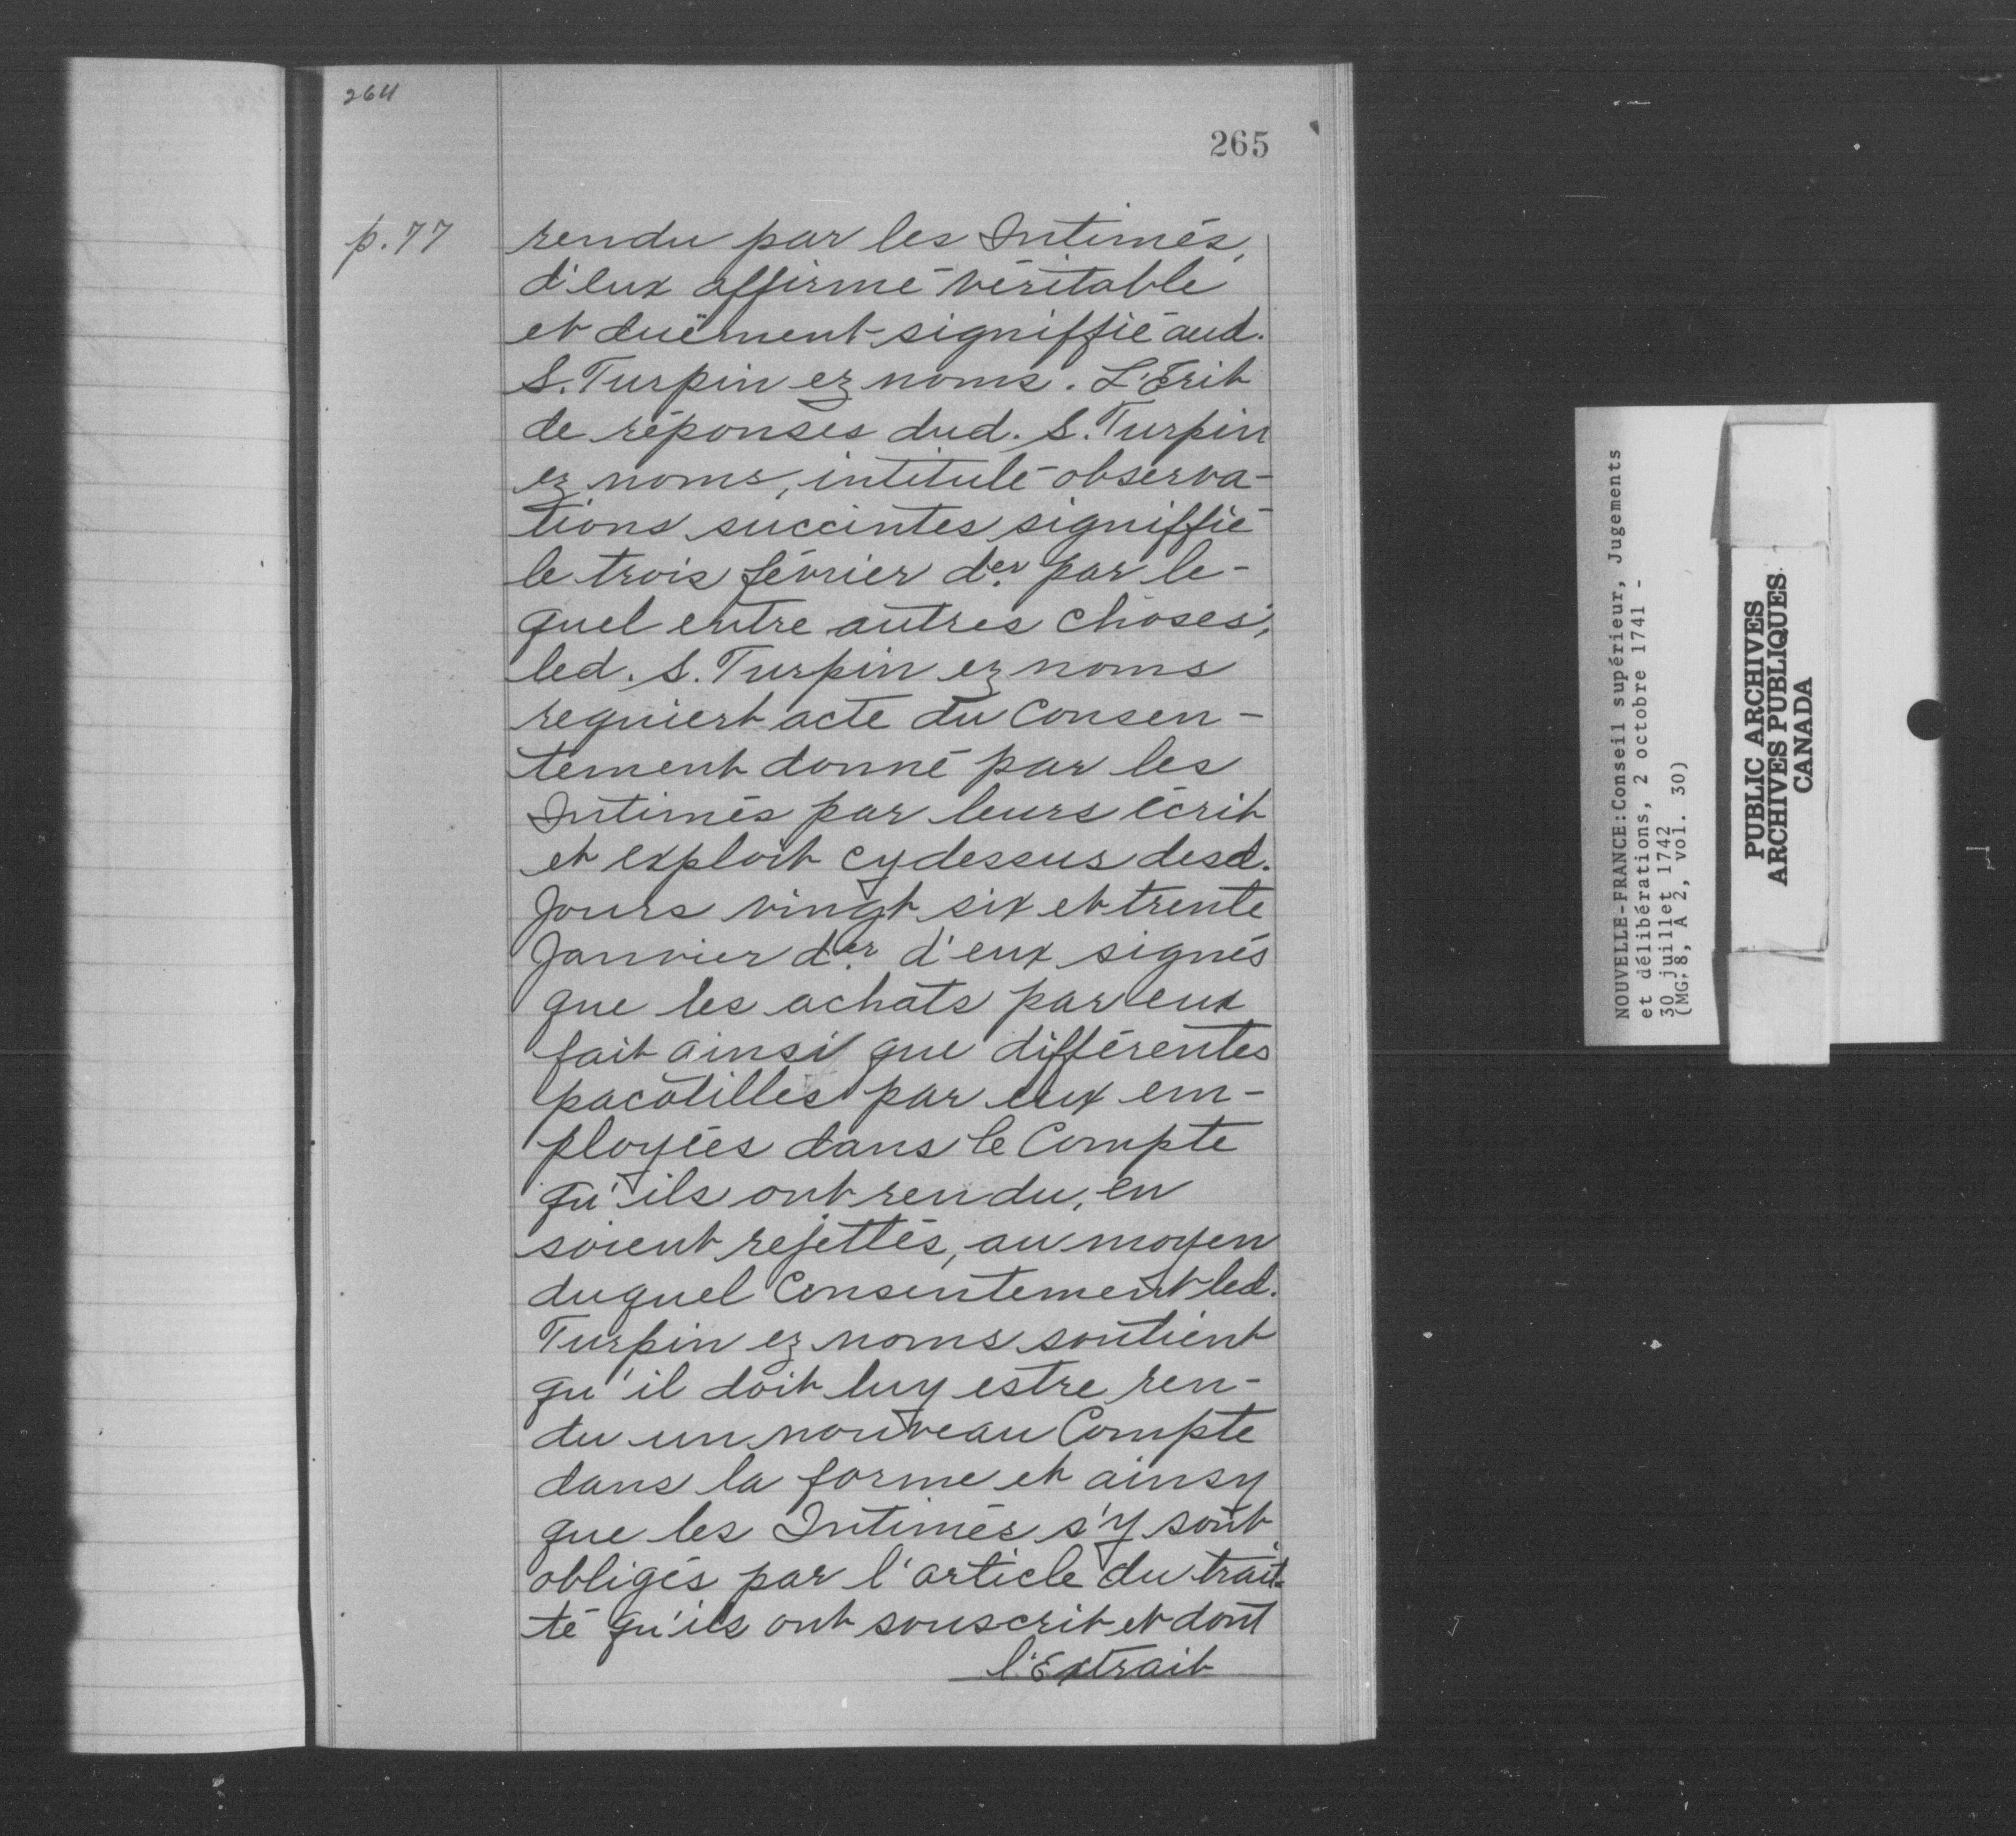 264
265
p.77
rendu par les Intimés,
d'eux affirmé véritable
et duëment signiffié aud.
S. Turpin ez noms. L'Ecrit
de réponses dud. S. Turpin
ez noms, intitulé observa-
tions succintes signiffié
le trois février der. par le-
quel entre autres choses,
led. S. Turpin ez noms
requiert acte du Consen-
tement donné par les
Intimés par leurs écrit
et exploit cydessus desd.
Jours vingt six et trente
Janvier der. d'eux signés
que les achats par eux
fait ainsi que différentes
pacotilles par eux em-
ployées dans le Compte
qu'ils ont rendu, en
soient rejettés, au moyen
duquel Consentement led.
Turpin ez noms soutient
qu'il doit luy estre ren-
du un nouveau Compte
dans la forme et ainsy
que les Intimés s'y sont
obligés par l'article du trait-
té qu'ils ont souscrit et dont
l'Extrait
NOUVELLE-FRANCE:Conseil supérieur, Jugements
et délibérations, 2 octobre 1741 -
30 juillet 1742
(MG 8, A 2, vol. 30)
PUBLIC ARCHIVES
ARCHIVES PUBLIQUES
CANADA